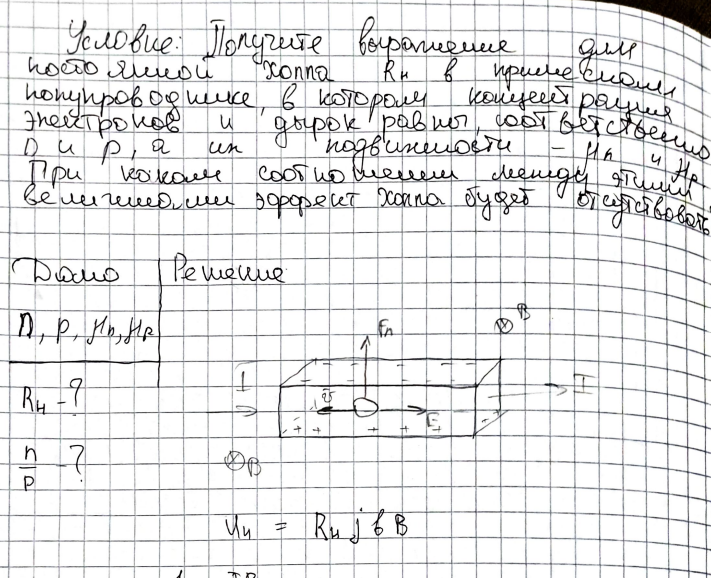 Условие: Получите выражение для
постоянной Холла Rн в примесном
полупроводнике, в котором концентрация
электронов и дырок равны, соответственно
n и p, а их подвижности - μn и μp.
При каком соотношении между этими
величинами эффект Холла будет отсутствовать
Дано Решение
n, p, μn, μp
Rн - ?
n/p - ?
Fл
⊗B
I
- - - - - -
v
E
I
+ + + + + +
⊗B
Uн = Rн j b B